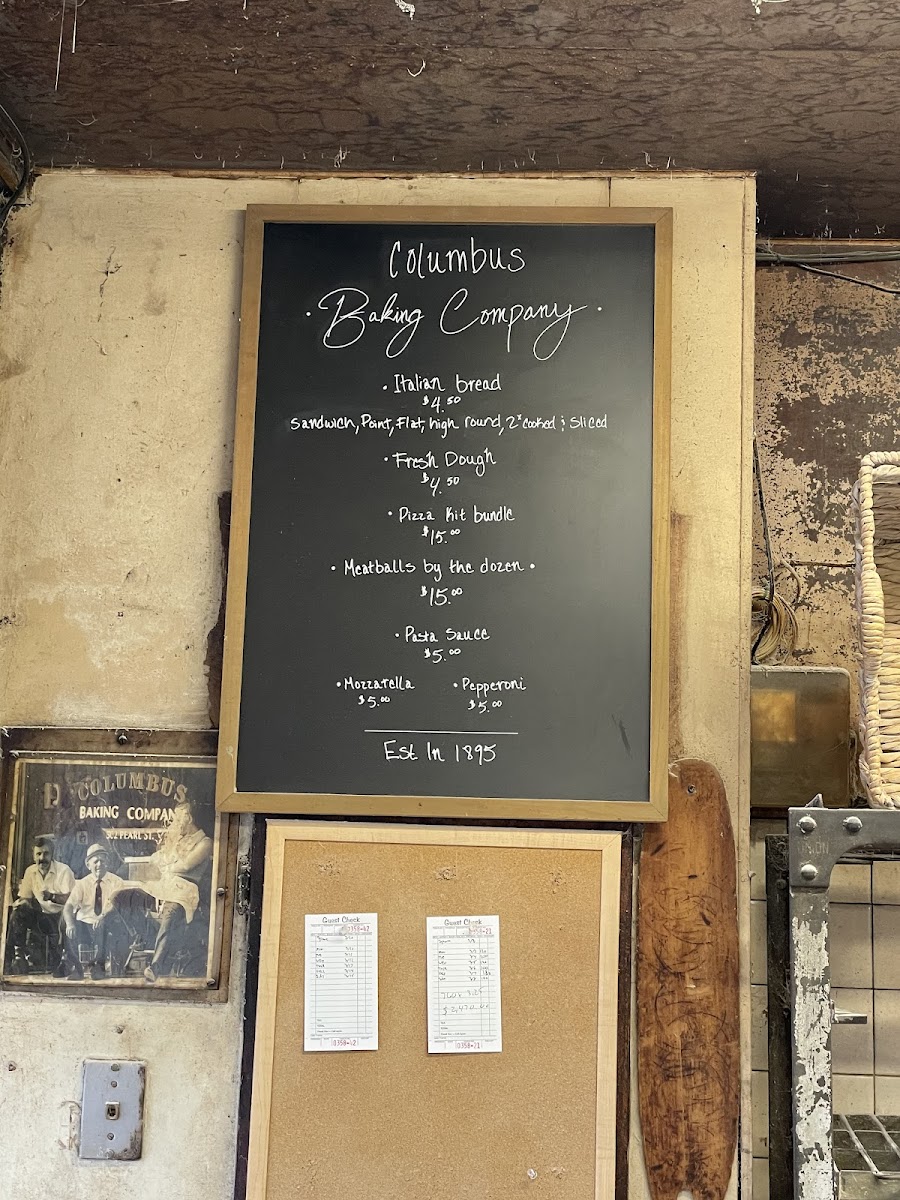 Columbus
· Baking Company ·
· Italian bread
$4.50
Sandwich, Point, Flat, high round, 2x cooked & sliced
· Fresh Dough
$4.50
· Pizza Kit bundle
$15.00
· Meatballs by the dozen ·
$15.00
· Pasta Sauce
$5.00
· Mozzarella · Pepperoni
$5.00 $5.00
Est In 1895
COLUMBUS
BAKING COMPANY
502 PEARL ST.
Guest Check
0358-42
0358-42
Guest Check
0358-21
0358-21
UNION